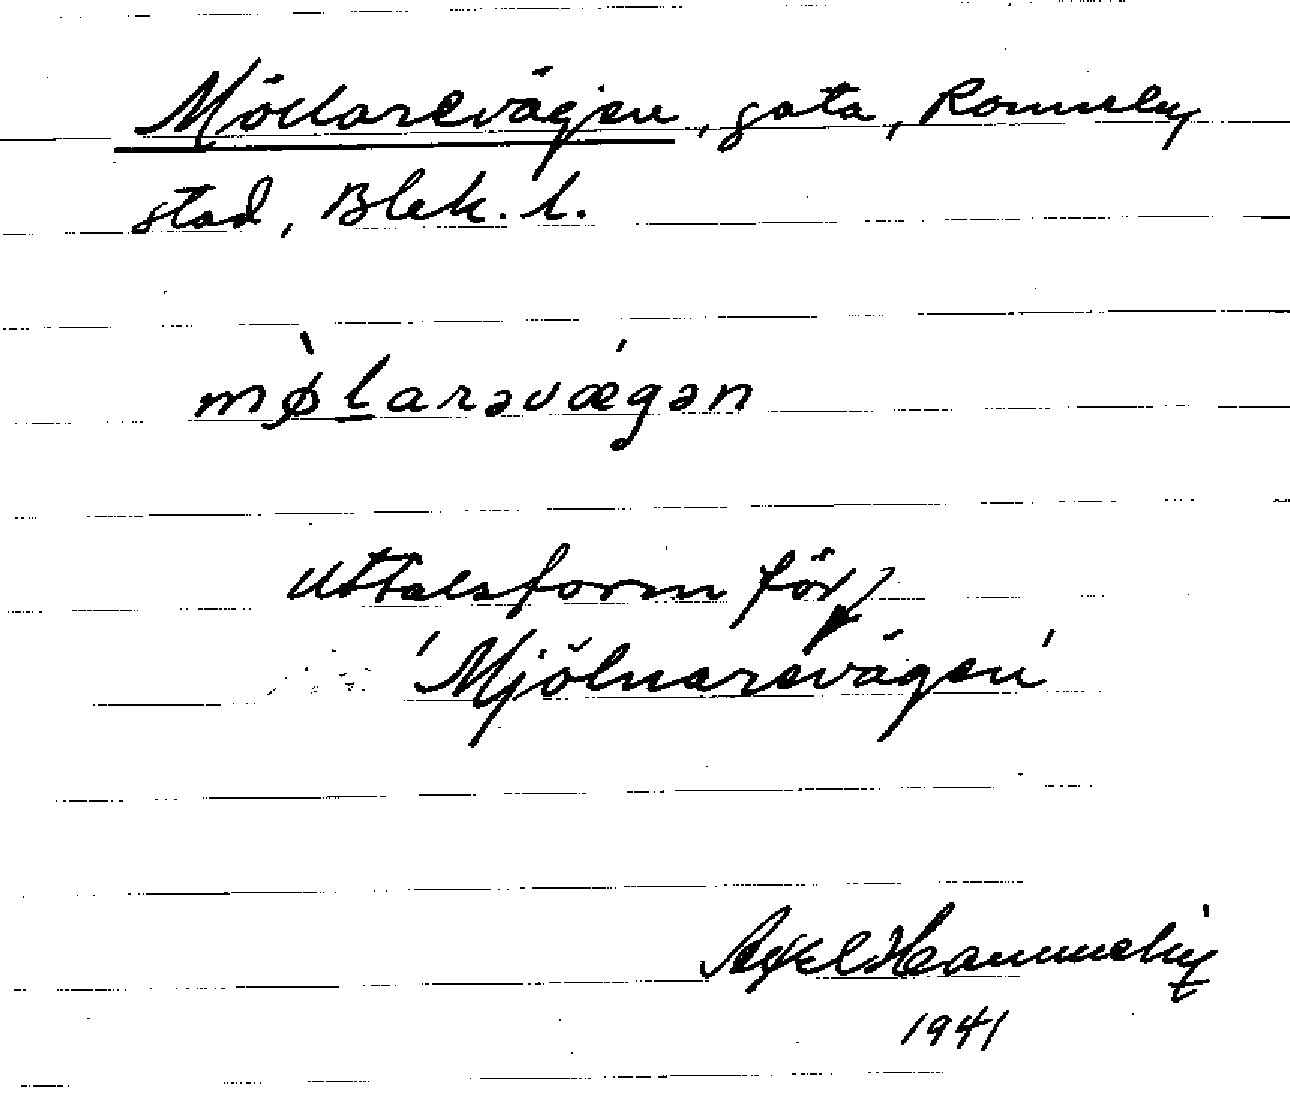 Möllarevägen, gata, Ronneby
stad, Blek. l.
mø̀larəvǽgən
Uttalsform för
'Mjölnarevägen'
Axel
1941